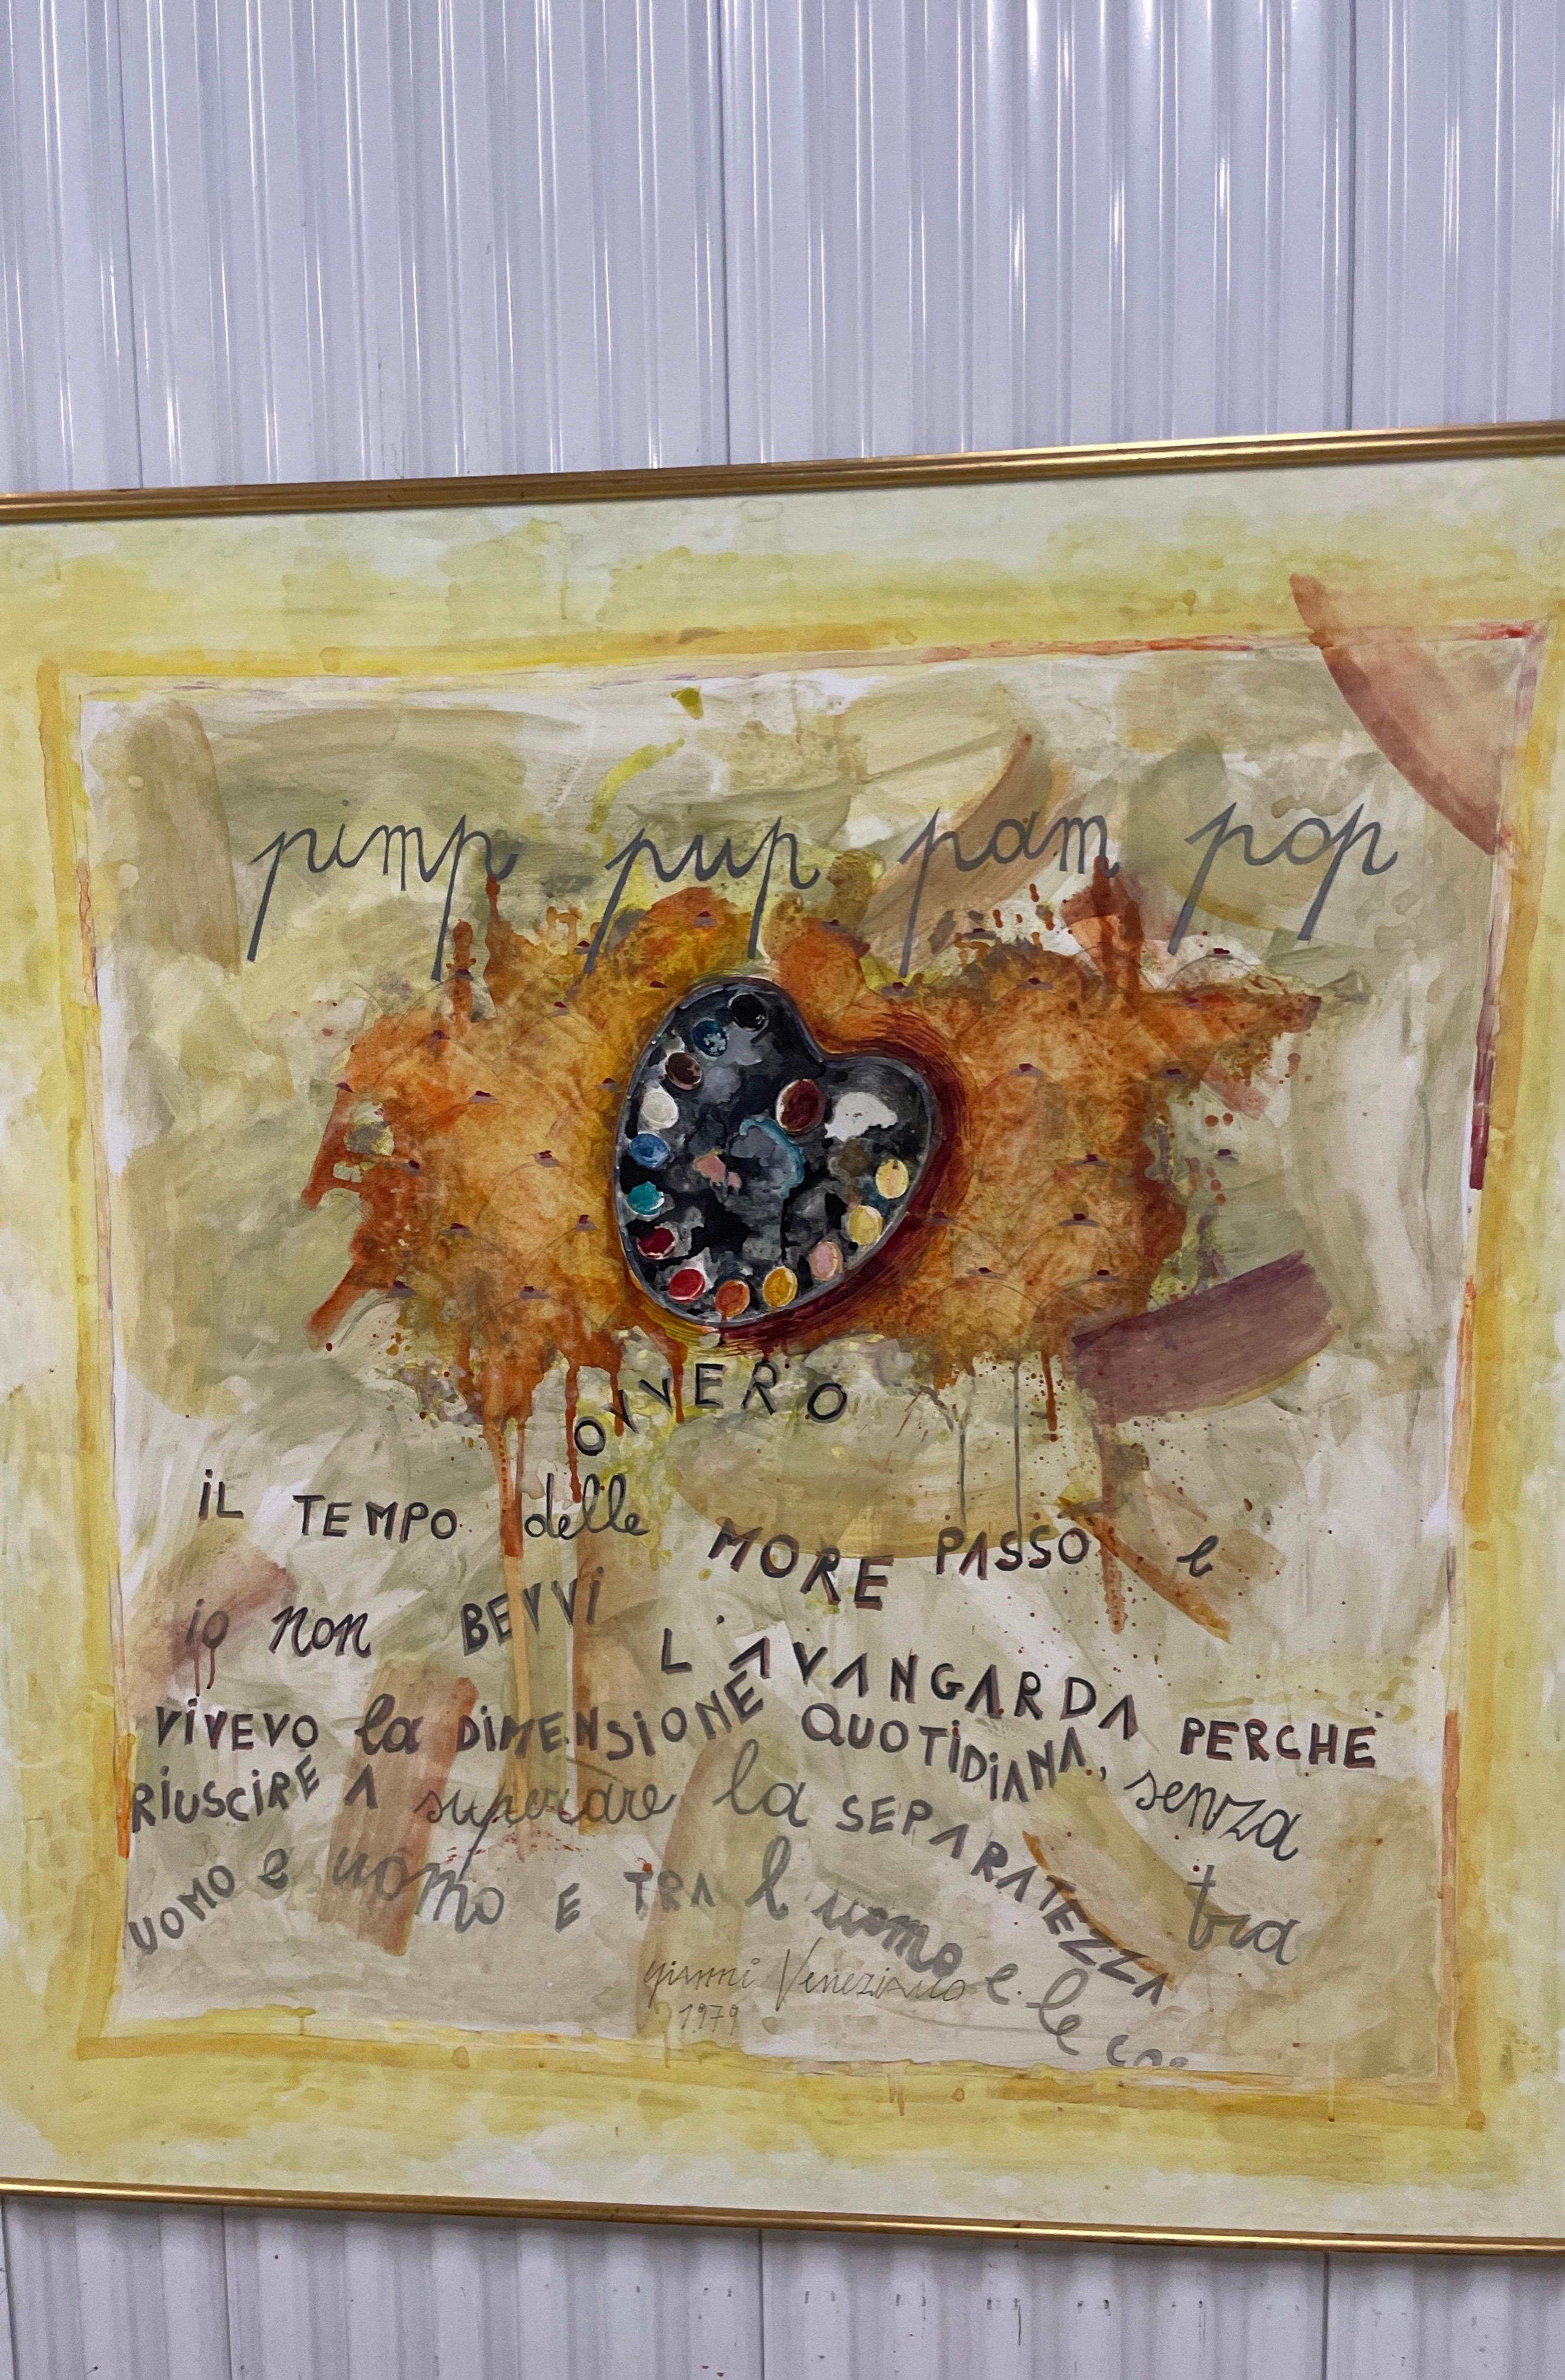 pimp pup pam pop
OVVERO
iL TEMPO delle MORE PASSO e
io non BEVVi L'AVANGARDA PERCHE
ViVEVO la DiMENSiONE QUOTiDiANA, senza
RiUSCiRE A superare la SEPARATEZZA tra
UOMO e uomo E TRA l uomo e le
gianni Veneziano
1979